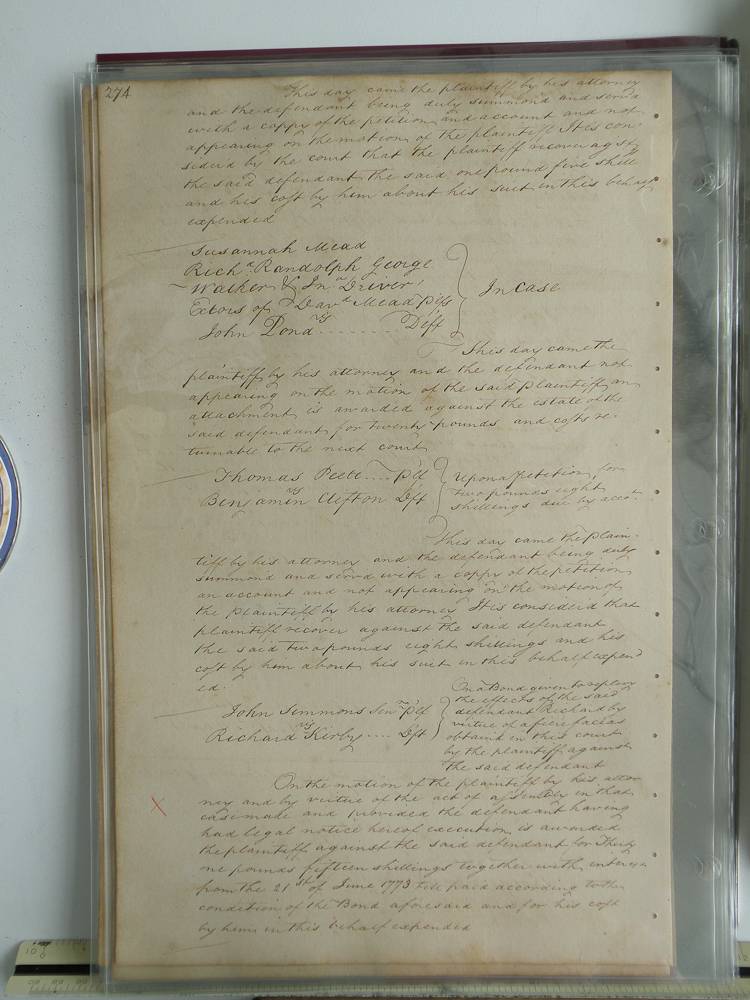 274
This day came the plaintiff by his attorney
and the defendant being duly summond and servd
with a coppy of the petition and account and not
appearing on the motion of the plaintiff It is con
siderd by the court that the plaintiff recover agst
the said defendant the said one pound five shill
and his cost by him about his suit in this behalf
expended
Susannah Mead
Richd Randolph George
Walker & Jn Driver
Extors of Davd Mead Plfs
In Case
vs
John Pond ........ Deff
This day came the
plaintiff by his attorney and the defendant not
appearing on the motion of the said plaintiff an
attachment is awarded against the estate of the
said defendant for twenty pounds and costs re-
turnable to the next court
Thomas .... Plf
vs
Benjamin Clifton Deft
Upon a petition for
two pounds eight
shillings due by acct
This day came the plain-
tiff by his attorney and the defendant being duly
summond and servd with a coppy of the petition
an account and not appearing on the motion of
the plaintiff by his attorney It is considerd that
plaintiff recover against the said defendant
the said two pounds eight shillings and his
cost by him about his suit in this behalf expend
ed.
John Simmons Senr Plf
vs
Richard Kirby .... Deft
On a Bond given to replevy
the effects of the said
defendant Richard by
virtue of a fiere facias
obtaind in this court
by the plaintiff against
the said defendant
On the motion of the plaintiff by his attor
ney and by virtue of the act of assembly in that
case made and provided the defendant having
had legal notice hereof execution is awarded
the plaintiff against the said defendant for Thirty
one pounds fifteen shillings together with interest
from the 21st of June 1773 till paid according to the
condition of the Bond aforesaid and for his cost
by him in this behalf expended